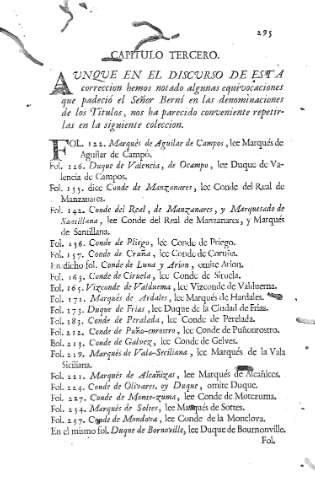 295
CAPITULO TERCERO.
AUNQUE EN EL DISCURSO DE ESTA
correccion hemos notado algunas equivocaciones
que padeció el Señor Berní en las denominaciones
de los Titulos, nos ha parecido conveniente repetir-
las en la siguiente coleccion.
FOL. 122. Marqués de Aguilar de Campos, lee Marqués de
Aguilar de Campó.
Fol. 126. Duque de Valencia, de Ocampo, lee Duque de Va-
lencia de Campos.
Fol. 135. dice Conde de Manzanares, lee Conde del Real de
Manzanares.
Fol. 142. Conde del Real, de Manzanares, y Marquesado de
Santillana, lee Conde del Real de Manzanares, y Marqués
de Santillana.
Fol. 156. Conde de Pliego, lee Conde de Priego.
Fol. 157. Conde de Cruña, lee Conde de Coruña.
En dicho fol. Conde de Luna y Arion, omite Arion.
Fol. 163. Conde de Ciruela, lee Conde de Siruela.
Fol. 165. Vizconde de Valduema, lee Vizconde de Valduerna.
Fol. 171. Marqués de Ardales, lee Marqués de Hardales.
Fol. 173. Duque de Frias, lee Duque de la Ciudad de Frias.
Fol. 183. Conde de Peralada, lee Conde de Perelada.
Fol. 212. Conde de Puño-enrostro, lee Conde de Puñonrostro.
Fol. 213. Conde de Galvez, lee Conde de Gelves.
Fol. 219. Marqués de Vala-Seciliana, lee Marqués de la Vala
Siciliana.
Fol. 221. Marqués de Alcañizas, lee Marqués de Alcañices.
Fol. 224. Conde de Olivares, oy Duque, omite Duque.
Fol. 227. Conde de Monte-zuma, lee Conde de Motezuma.
Fol. 234. Marqués de Solter, lee Marqués de Sottes.
Fol. 257. Conde de Mondova, lee Conde de la Monclova.
En el mismo fol. Duque de Bornoville, lee Duque de Bournonville.
Fol.